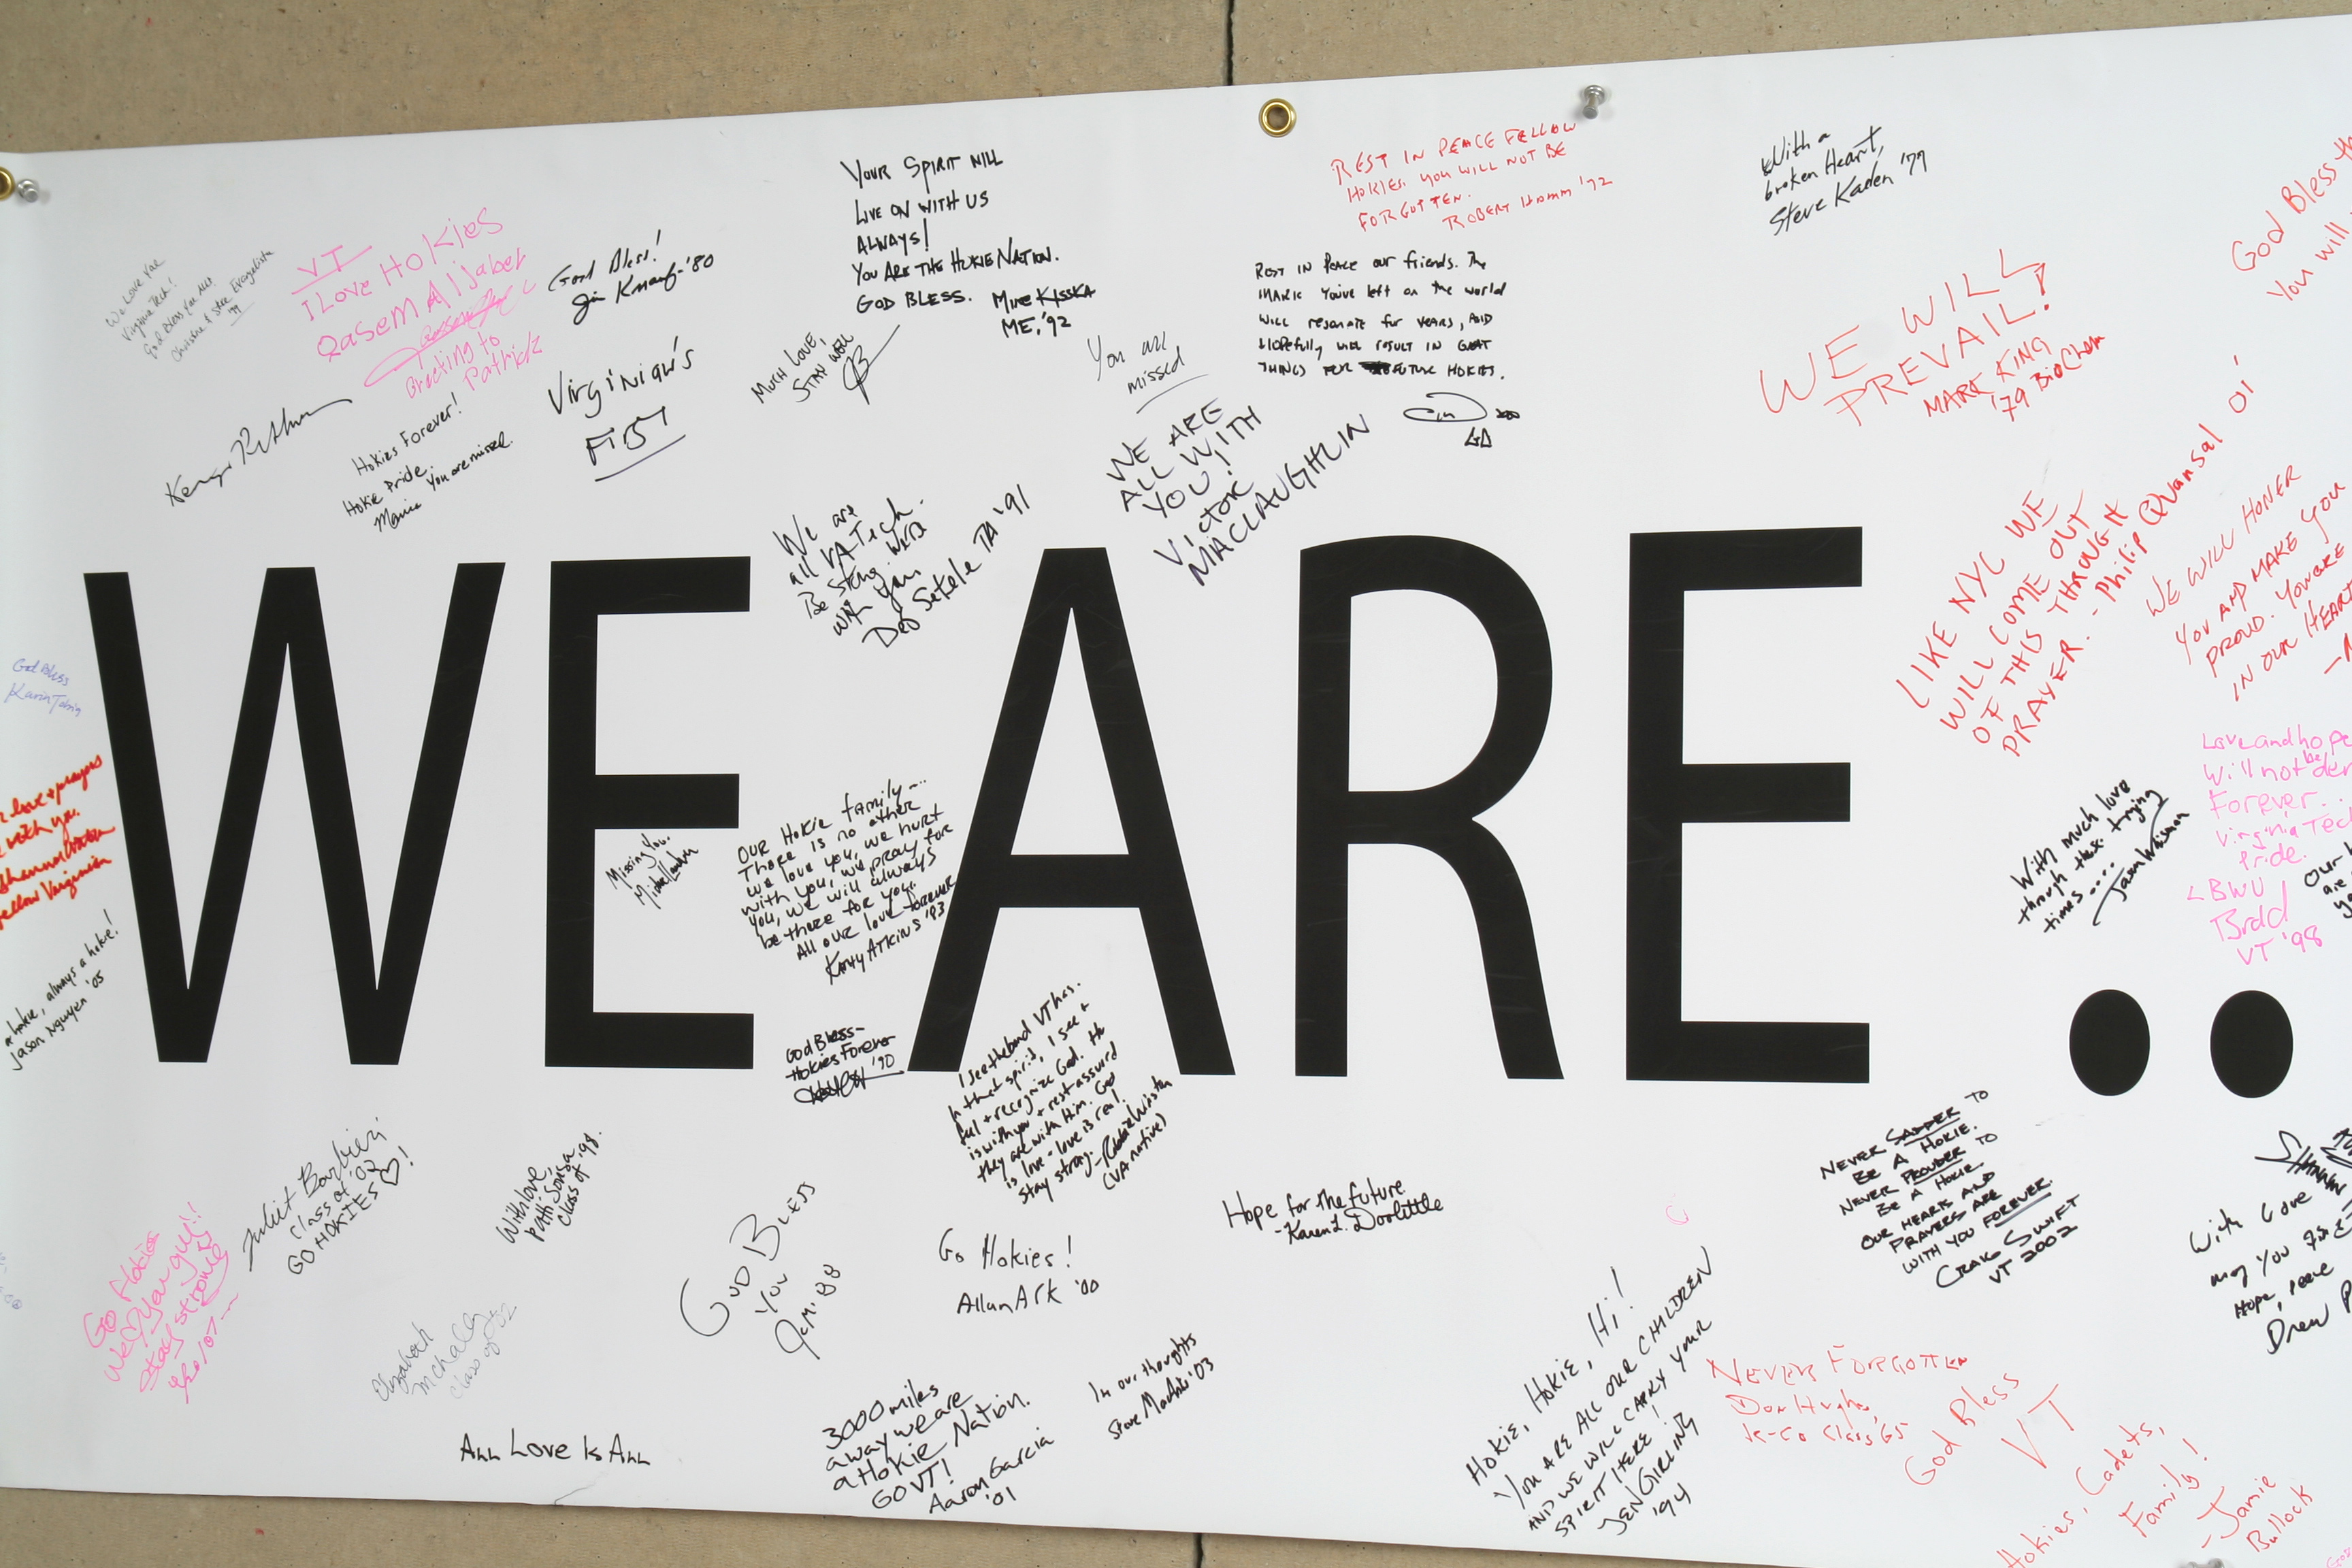 WE ARE..
We Love You
Virginia Tech!
God Bless You All.
VT
I Love Hokies
Qasem Aljaber
Greeting to
Patrick
God Bless!
Jim '80
YOUR SPIRIT WILL
LIVE ON WITH US
ALWAYS!
YOU ARE THE HOKIE NATION.
GOD BLESS. MIKE KISSKA
ME, '92
REST IN PEACE FELLOW
HOKIES. YOU WILL NOT BE
FORGOTTEN.
ROBERT HAMM '72
With a
broken Heart,
Steve Kaden '79
God Bless
You will
Hokies Forever!
Hokie Pride
You are missed.
Virginia's
FIRST
MUCH LOVE,
STAY WELL
You are
missed
REST IN PEACE OUR FRIENDS. THE
MARK YOU'VE left on the world
WILL resonate for YEARS, AND
HOPEfully will RESULT IN GREAT
THINGS FOR FUTURE HOKIES.
WE ARE
ALL WITH
YOU!
VICTOR
MACLAUGHLIN
WE WILL
PREVAIL!
MARK KING
'79 BioChem
LIKE NYC WE
WILL COME OUT
OF THIS THROUGH
PRAYER. - Philip Quansal 01'
WE WILL HONER
YOU AND MAKE YOU
PROUD. YOU ARE
IN OUR HEART
We are
all VA Tech.
Be Strong. We're
with you
TA '91
God Bless
love + prayers
with you.
fellow Virginian
a hokie, always a hokie!
Jason Nguyen '05
Missing You.
OUR Hokie family...
There is no other
we love you, we hurt
with you, we pray for
you, we will always
be there for you.
All our love forever
KATY ATKINS '93
God Bless-
Hokies Forever
'90
I see the bond VT has.
In that spirit, I see +
feel + recognize God. He
is with you + rest assured
they are with Him. God
is love - love is real.
Stay strong. - Winston
(VA native)
With much love
through these trying
times....
Love and hope
will not be
Forever..
Virginia Tech
Pride.
LBWU
Brad
VT '98
our
are
Juliet Barbieri
Class of '02
GO HOKIES ♡!
With love,
Class of '98.
Go Hokies
We ♡ you guys!!
stay strong
Elizabeth
McNally
Class of '82
GOD BLESS
YOU
'88
Go Hokies!
Allan Ark '00
Hope for the future
-Karen L. Doolittle
NEVER SADDER TO
BE A HOKIE.
NEVER PROUDER TO
BE A HOKIE.
OUR HEARTS AND
PRAYERS ARE
WITH YOU FOREVER.
CRAIG SWIFT
VT 2002
With Love
may you
Hope, peace
Drew
In our thoughts
'03
3000 miles
away we are
a Hokie Nation.
GO VT!
Aaron Garcia
'01
ALL LOVE IS ALL
HOKIE, HOKIE, HI!
YOU ARE ALL OUR CHILDREN
AND WE WILL CARRY YOUR
SPIRIT HERE!
JEN GIRLING
'94
NEVER FORGOTTEN
Don Hughes
K-Co Class '65
God Bless
VT
Hokies, Cadets,
Family!
-Jamie
Bullock